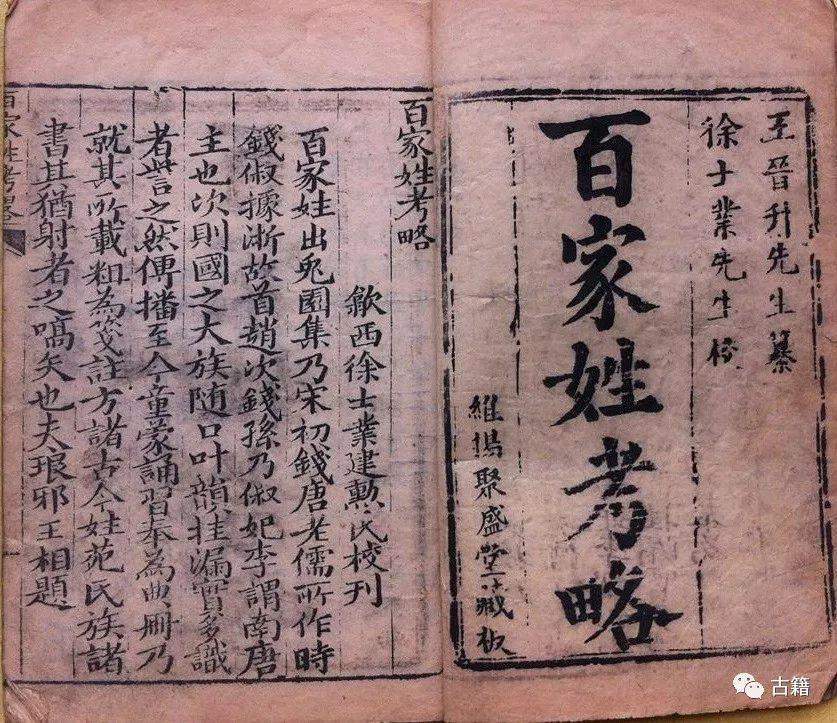 王晉升先生纂
徐士業先生校
百家姓考略
維揚聚盛堂藏板
百家姓考略
歙西徐士業建勲氏校刊
百家姓出兎園集乃宋初錢唐老儒所作時
錢俶據浙故首趙次錢孫乃俶妃李謂南唐
主也次則國之大族隨口叶韻挂漏實多識
者訾之然傳播至今童蒙誦習奉為典冊乃
就其所載粗為箋註方諸古今姓苑氏族諸
書其猶射者之嚆矢也夫琅邪王相題
百家姓考畧
古籍